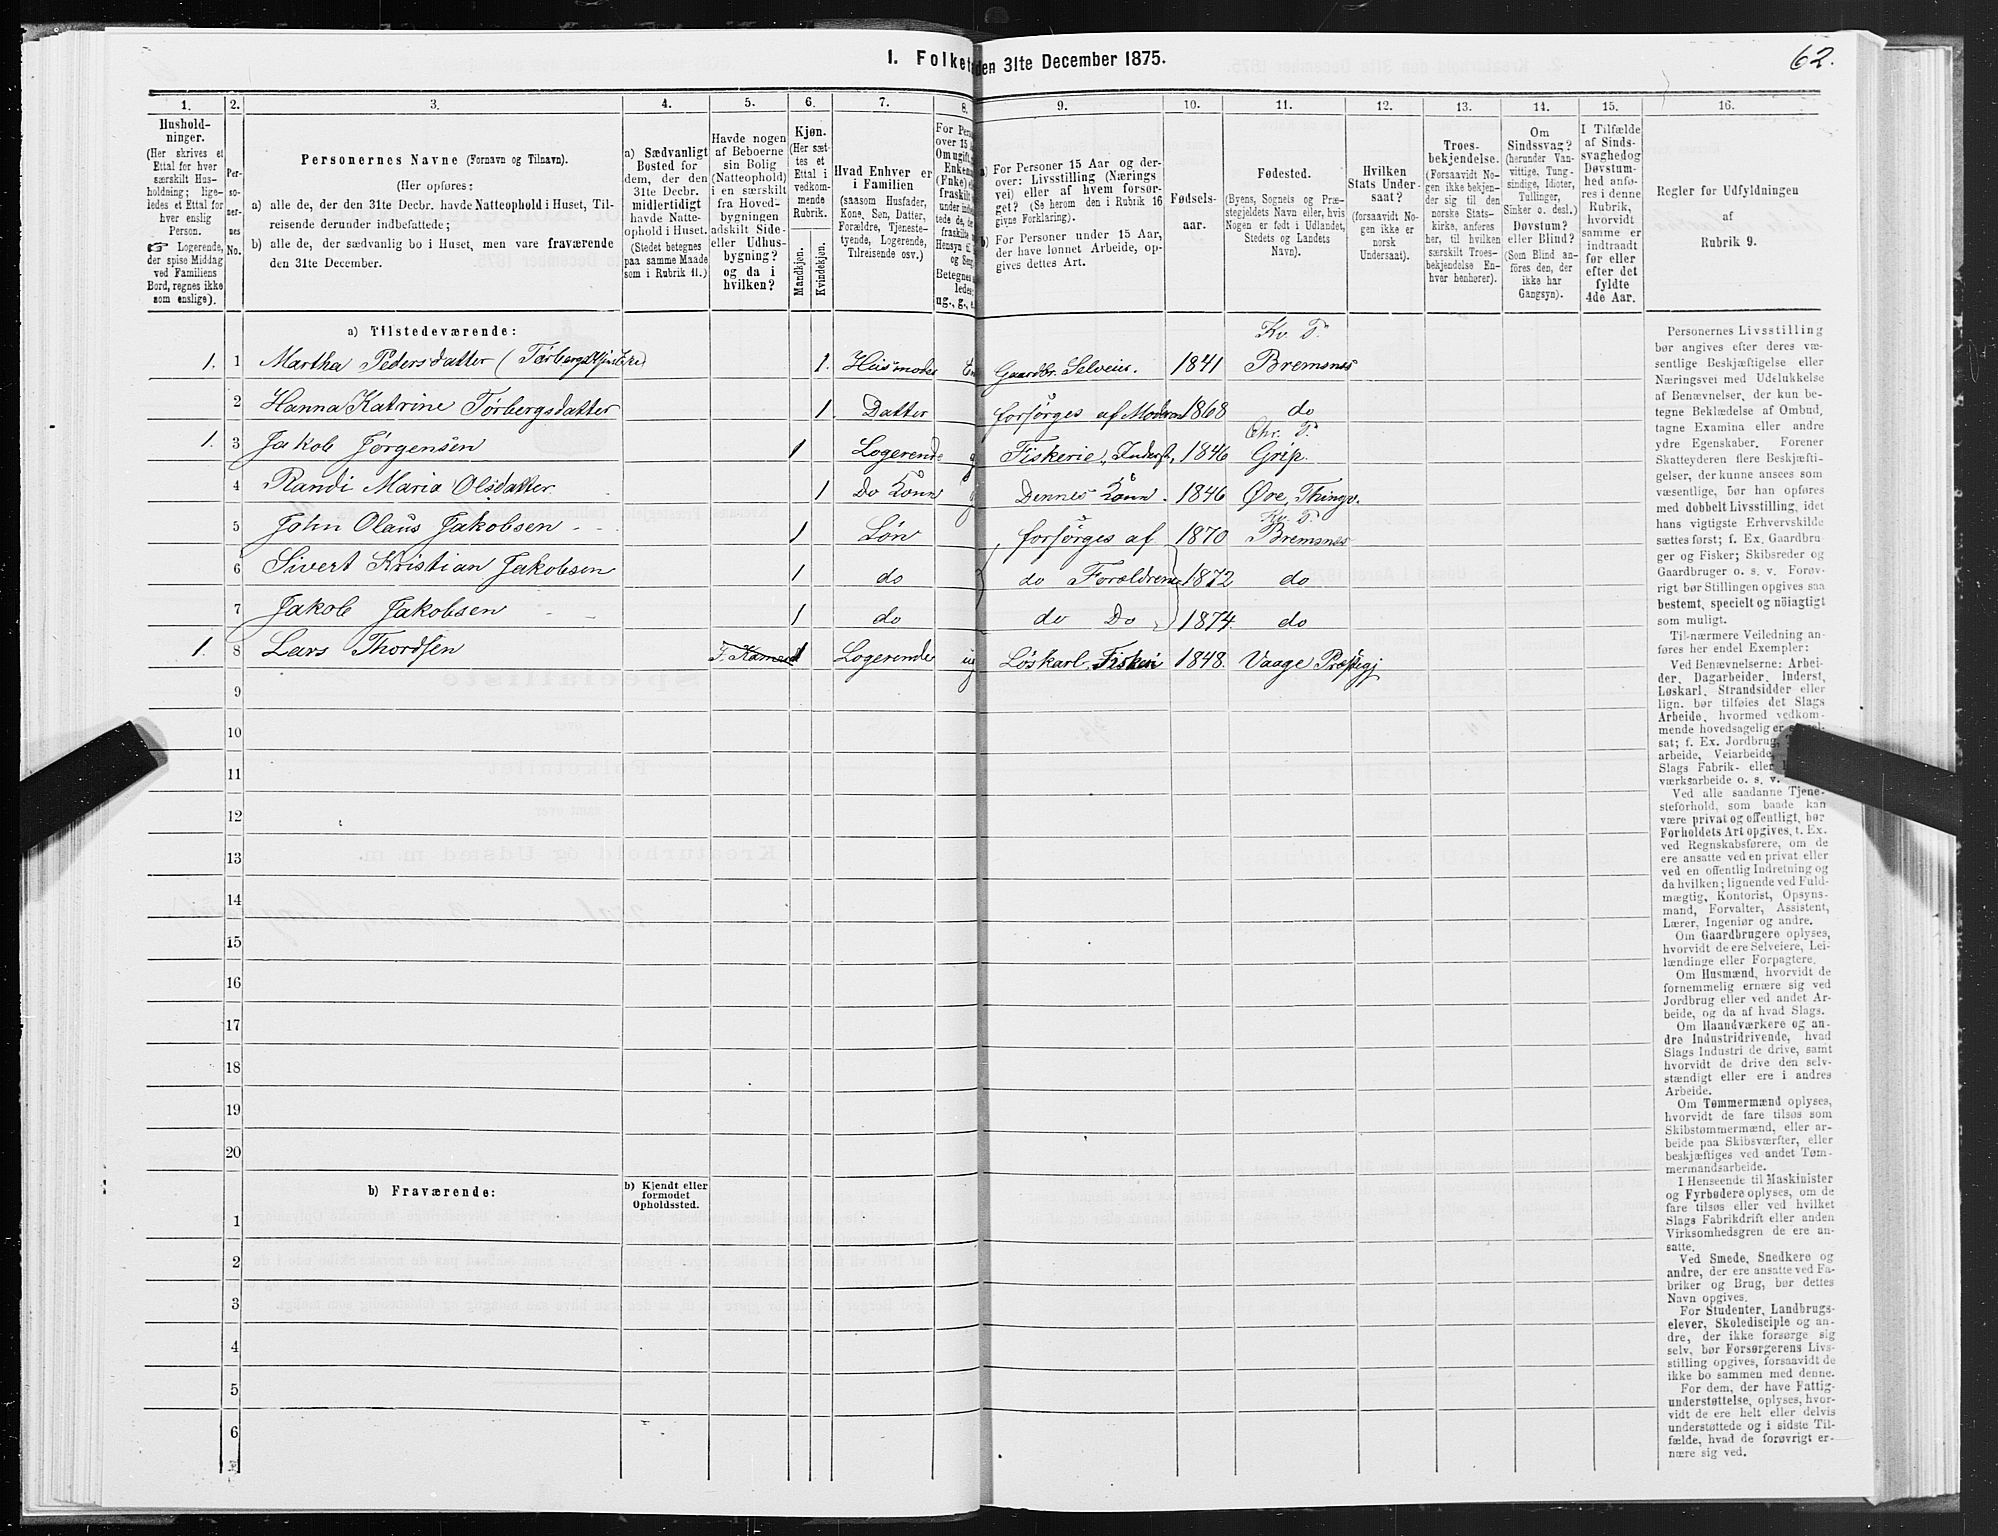 62.
1. Folket den 31te December 1875.
1. 2. 3. 4. 5. 6. 7. 8. 9. 10. 11. 12. 13. 14. 15. 16.
Hushold-
ninger.
(Her skrives et
Ettal for hver
særskilt Hus-
holdning; lige-
ledes et Ettal for
hver enslig
Person.
☞ Logerende,
der spise Middag
ved Familiens
Bord, regnes ikke
som enslige).
Per-
so-
ner-
nes
No.
Personernes Navne (Fornavn og Tilnavn).
(Her opføres:
a) alle de, der den 31te Decbr. havde Natteophold i Huset, Til-
reisende derunder indbefattede;
b) alle de, der sædvanlig bo i Huset, men vare fraværende
den 31te December.
a) Sædvanligt
Bosted for
dem, der den
31te Decbr.
midlertidigt
havde Natte-
ophold i Huset.
(Stedet betegnes
paa samme Maade
som i Rubrik 11.)
Havde nogen
af Beboerne
sin Bolig
(Natteophold)
i en særskilt
fra Hoved-
bygningen
adskilt Side-
eller Udhus-
bygning?
og da i
hvilken?
Kjøn.
(Her sæt-
tes et
Ettal i
vedkom-
mende
Rubrik.
Mandkjøn.
Kvindekjøn.
Hvad Enhver er
i Familien
(saasom Husfader,
Kone, Søn, Datter,
Forældre, Tjeneste-
tyende, Logerende,
Tilreisende osv.)
For Pers
over 15 A
Om ugift,
Enkem
(Fnke) el
fraskilt
under indbe
tede de, de
fraskilte
Hensyn t
og Seng
Betegnes
ledes:
ug., g., e
a) For Personer 15 Aar og der-
over: Livsstilling (Nærings
vei) eller af hvem forsør-
get? (Se herom den i Rubrik 16
givne Forklaring).
b) For Personer under 15 Aar,
der have lønnet Arbeide, op-
gives dettes Art.
Fødsels-
aar.
Fødested.
(Byens, Sognets og Præ-
stegjeldets Navn eller, hvis
Nogen er født i Udlandet,
Stedets og Landets
Navn).
Hvilken
Stats Under-
saat?
(forsaavidt No-
gen ikke er
norsk
Undersaat).
Troes-
bekjendelse.
(Forsaavidt No-
gen ikke bekjen-
der sig til den
norske Stats-
kirke, anføres
her, til hvilken
særskilt Troes-
bekjendelse En-
hver henhører).
Om
Sindssvag?
(herunder Van-
vittige, Tung-
sindige, Idioter,
Tullinger,
Sinker o. desl.)
Døvstum?
eller Blind?
(Som Blind an-
føres den, der
ikke har
Gangsyn).
I Tilfælde
af Sinds-
svaghedog
Døvstum-
hed anfø-
res i denne
Rubrik,
hvorvidt
samme er
indtraadt
før eller
efter det
fyldte
4de Aar.
Regler før Udfyldningen
af
Rubrik 9.
a) Tilstedeværende:
Kv. P.
1. 1 Martha Pedersdatter 1. Husmoder En Gaardbr. Selveier. 1841 Bremsnes
2 Hanna Katrine Torbergsdatter 1 Datter forsørges af Moderen 1868 do
Chr. P.
1. 3 Jakob Jørgensen 1 Logerende g Fiskerie, Inderst, 1846 Grip.
4 Randi Maria Olsdatter 1 Do Konn g Dennes Konn. 1846 Øre, Thingv.
Kv. P.
5 John Olaus Jakobsen 1 Søn forsørges af 1870 Bremsnes
6 Sivert Kristian Jakobsen 1 do do Forældrene 1872 do
7 Jakob Jakobsen 1 do do Do 1874. do
1. 8 Lars Thordsen 1 Logerende ug Løskarl, Fiskeri 1848. Vaage Præstegj
9
10
11
12
13
14
15
16
17
18
19
20
b) Fraværende:
b) Kjendt eller
formodet
Opholdssted.
1
2
3
4
5
6
Personernes Livsstilling
bør angives efter deres væ-
sentlige Beskjæftigelse eller
Næringsvei med Udelukkelse
af Benævnelser, der kun be-
tegne Beklædelse af Ombud,
tagne Examina eller andre
ydre Egenskaber. Forener
Skatteyderen flere Beskjæfti-
gelser, der kunne ansees som
væsentlige, bør han opføres
med dobbelt Livsstilling, idet
hans vigtigste Erhvervskilde
sættes først; f. Ex. Gaardbru-
ger og Fisker; Skibsreder og
Gaardbruger o. s. v. Forøv-
rigt bør Stillingen opgives saa
bestemt, specielt og nöiagtigt
som muligt.
Til nærmere Veiledning an-
føres her endel Exempler:
Ved Benævnelserne: Arbei-
der, Dagarbeider, Inderst,
Løskarl, Strandsidder eller
lign. bør tilføies det Slags
Arbeide, hvormed vedkom-
mende hovedsagelig er
sat; f. Ex. Jordbrug,
arbeide, Veiarbeide,
Slags Fabrik- eller
værksarbeide o. s. v.
Ved alle saadanne Tjene-
steforhold, som baade kan
være privat og offentligt, bør
Forholdets Art opgives, t. Ex.
ved Regnskabsførere, om de
ere ansatte ved en privat eller
ved en offentlig Indretning og
da hvilken; lignende ved Fuld-
mægtig, Kontorist, Opsyns-
mand, Forvalter, Assistent,
Lærer, Ingeniør og andre.
Om Gaardbrugere oplyses,
hvorvidt de ere Selveiere, Lei-
lændinge eller Forpagtere.
Om Husmænd, hvorvidt de
fornemmelig ernære sig ved
Jordbrug eller ved andet Ar-
beide, og da af hvad Slags.
Om Haandværkere og an-
dre Industridrivende, hvad
Slags Industri de drive, samt
hvorvidt de drive den selv-
stændigt eller ere i andres
Arbeide.
Om Tømmermænd oplyses,
hvorvidt de fare tilsøs som
Skibstømmermænd, eller ar-
beide paa Skibsværfter, eller
beskjæftiges ved andet Tøm-
mermandsarbeide.
I Henseende til Maskinister
og Fyrbødere oplyses, om de
fare tilsøs eller ved hvilket
Slags Fabrikdrift eller anden
Virksomhedsgren de ere an-
satte.
Ved Smede, Snedkere og
andre, der ere ansatte ved Fa-
briker og Brug, bør dettes
Navn opgives.
For Studenter, Landbrugs-
elever, Skoledisciple og an-
dre, der ikke forsørge sig
selv, bør Forsørgerens Livs-
stilling opgives, forsaavidt de
ikke bo sammen med denne.
For dem, der have Fattig-
understøttelse, oplyses, hvor-
vidt de ere helt eller delvis
understøttede og i sidste Til-
fælde, hvad de forøvrigt er-
nære sig ved.